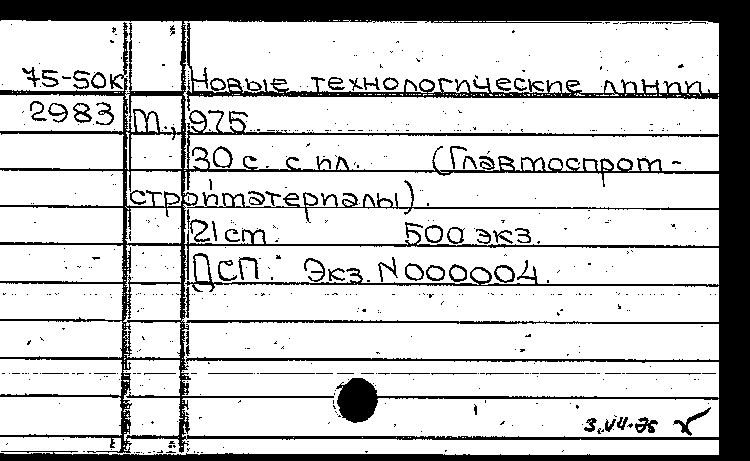 75-50к Новые технологические линии.
2983 М., 975.
30 с. с ил. (Главмоспром-
стройматериалы).
21 см. 500 экз.
ДСП. Экз. N000004.
3.VII-75